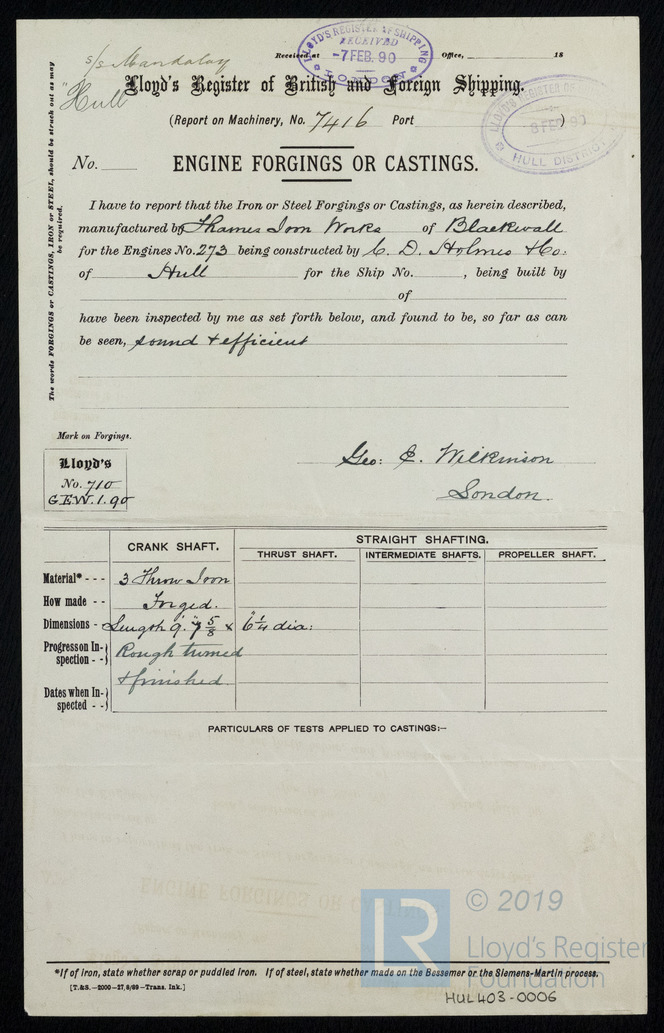 s/s Mandalay
"Hull
Received at Office, 18
LLOYD'S REGISTER OF SHIPPING
RECEIVED
-7 FEB. 90
LONDON
Lloyd's Register of British and Foreign Shipping.
(Report on Machinery, No. 7416 Port )
LLOYD'S REGISTER OF
8 FEB 90
HULL DISTRICT
No. ENGINE FORGINGS OR CASTINGS.
The words FORGINGS or CASTINGS, IRON or STEEL, should be struck out as may
be required.
I have to report that the Iron or Steel Forgings or Castings, as herein described,
manufactured by Thames Iron Works of Blackwall
for the Engines No. 273 being constructed by C. D. Holmes & Co:
of Hull for the Ship No. , being built by
of
have been inspected by me as set forth below, and found to be, so far as can
be seen, sound & efficient
Mark on Forgings.
Lloyd's
No. 710
G.E.W. 1.90
Geo: E. Wilkinson
London.
CRANK SHAFT. STRAIGHT SHAFTING.
THRUST SHAFT. INTERMEDIATE SHAFTS. PROPELLER SHAFT.
Material* - - - 3 Throw Iron
How made - - Forged.
Dimensions - Length 9'. 7 5/8" x 6 1/4" dia:
Progress on In-
spection - - Rough turned
& finished
Dates when In-
spected - -
PARTICULARS OF TESTS APPLIED TO CASTINGS:—
LR © 2019
Lloyd's Register
Foundation
*If of iron, state whether scrap or puddled iron. If of steel, state whether made on the Bessemer or the Siemens-Martin process.
[T.&S.—2000—27,8/89—Trans. Ink.]
HUL403-0006